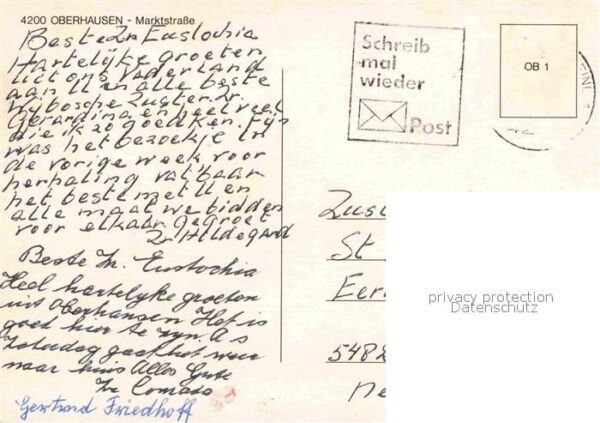 4200 OBERHAUSEN - Marktstraße
Beste Zr Eustochia
Hartelijke groeten
uit ons Vaderland
aan U en alle beste
Wijbosche Zuster Zr
Gerardina en heel veel
die ik zo goed ken. Fijn
was het bezoekje in
de vorige week voor
herhaling vatbaar
het beste met U en
alle maat we bidden
voor elkaar gegroet
Zr Hildegard
Beste Zr. Eustochia
Heel hartelyke groeten
uit Oberhausen Het is
goed hier te zyn. A s
Zaterdag gaat het weer
naar huis Alles Gute
Zr Conrada
Gertrud Friedhoff
Schreib
mal
wieder
Post
OB 1
Zust
St
Eer
5482
Ne
privacy protection
Datenschutz